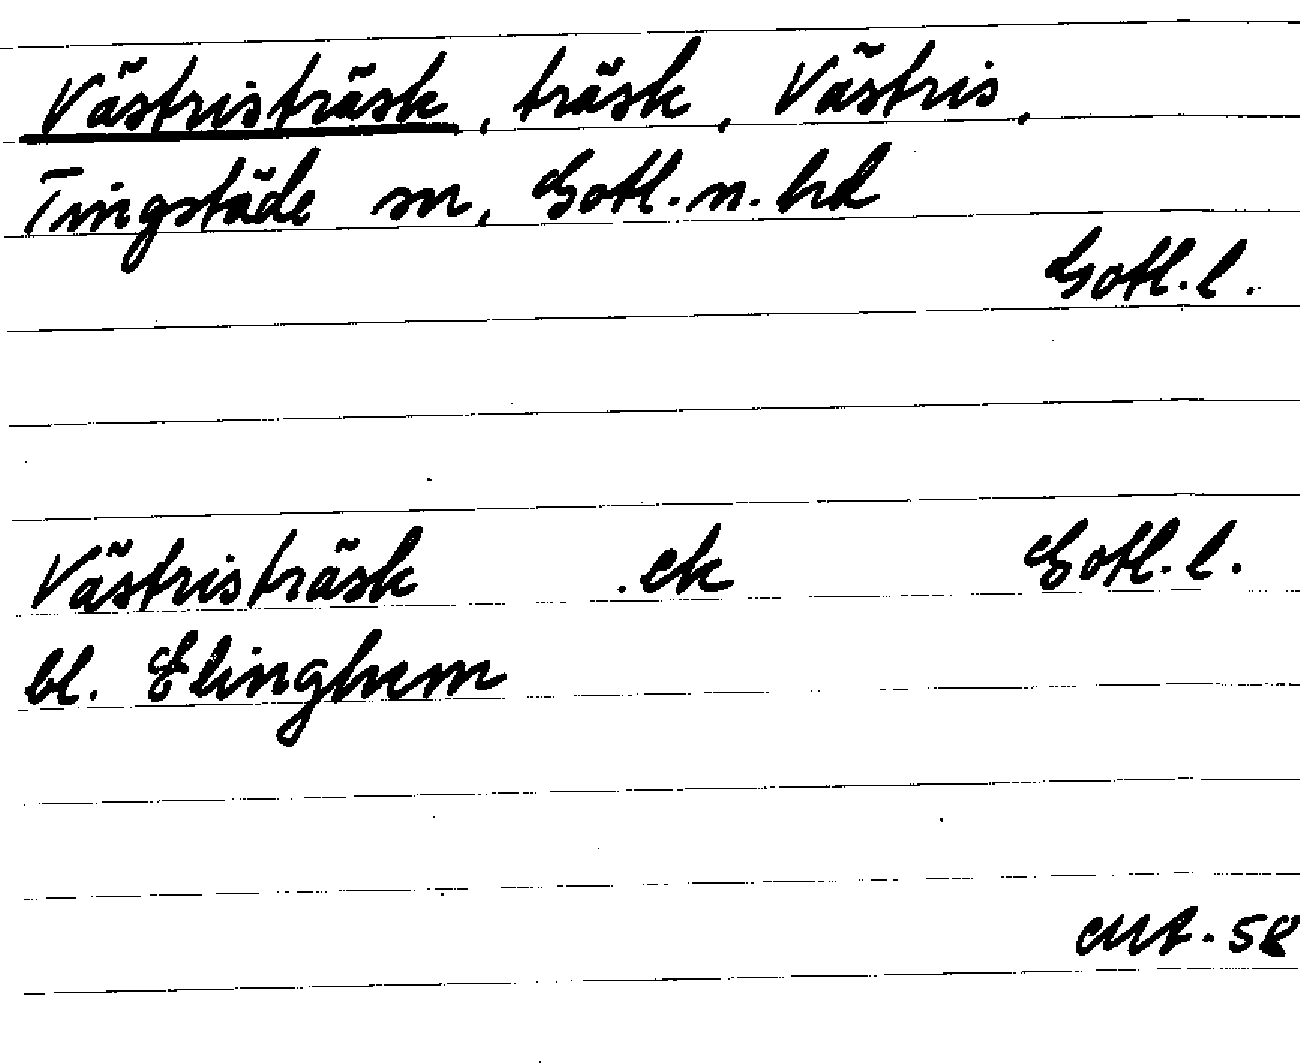 Västristräsk, träsk, Västris,
Tingstäde sn, Gotl. n. hd
Gotl. l.
Västristräsk ek Gotl. l.
bl. Elinghem
58